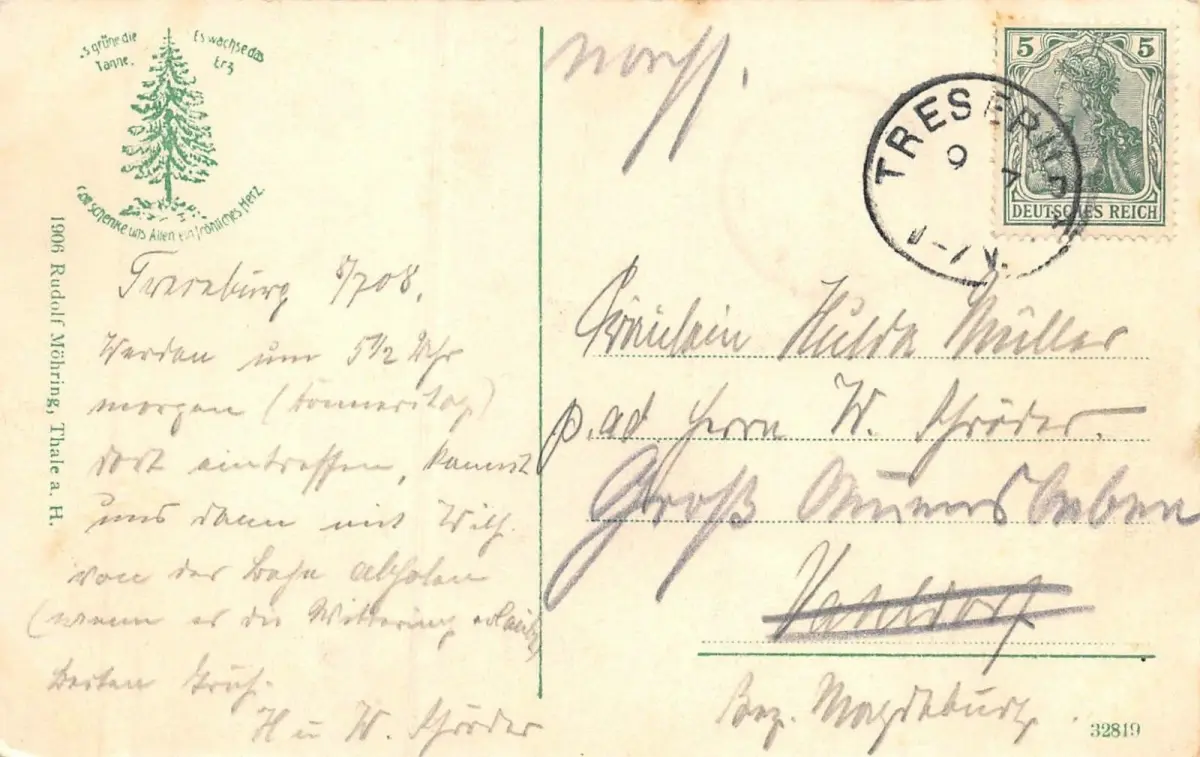 Es grüne die
Tanne.
Es wachse das
Erz
Gott schenke uns Allen ein fröhliches Herz.
1906 Rudolf Möhring, Thale a. H.
Treseburg 8/7 08.
Werden um 5 1/2 Uhr
morgen (Donnerstag)
dort eintreffen, kannst
uns dann mit Wilh.
von der Bahn abholen
(wenn es die Witterung erlaubt)
Besten Gruß.
H u W. Schröder
5 5
DEUTSCHES REICH
TRESEBURG
9 7
Fräulein Hulda Müller
p. ad. Herrn W. Schröder.
Groß
Vahldorf
Bez. Magdeburg.
32819